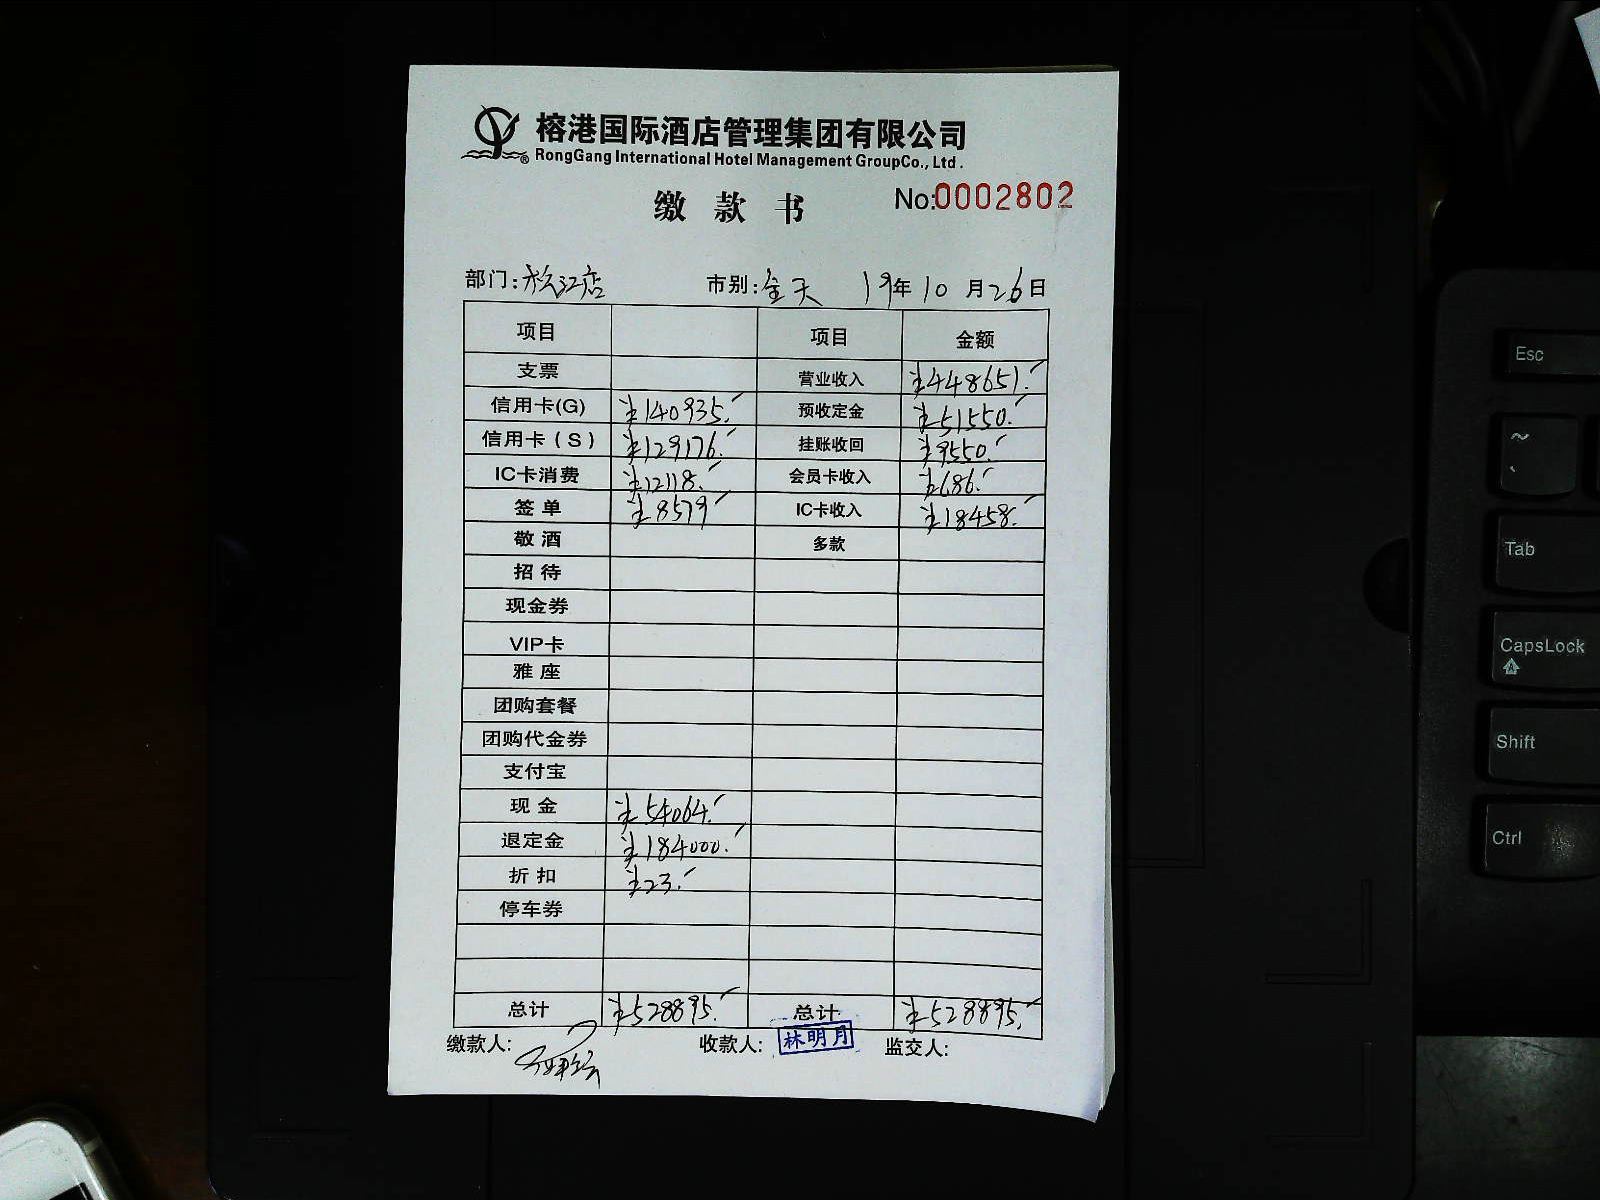 榕港国际酒店管理集团有限公司
® RongGang International Hotel Management GroupCo., Ltd.
缴款书 No:0002802
部门:松江店 市别:全天 19年10月26日
项目 项目 金额
支票 营业收入 ¥448651.
信用卡(G) ¥140935. 预收定金 ¥51550.
信用卡(S) ¥129176. 挂账收回 ¥9550.
IC卡消费 ¥12118. 会员卡收入 ¥686.
签单 ¥8579 IC卡收入 ¥18458.
敬酒 多款
招待
现金券
VIP卡
雅座
团购套餐
团购代金券
支付宝
现金 ¥54064.
退定金 ¥184000.
折扣 ¥23.
停车券
总计 ¥528895. 总计 ¥528895.
缴款人: 收款人: 林明月 监交人:
Esc
~
Tab
CapsLock
Shift
Ctrl